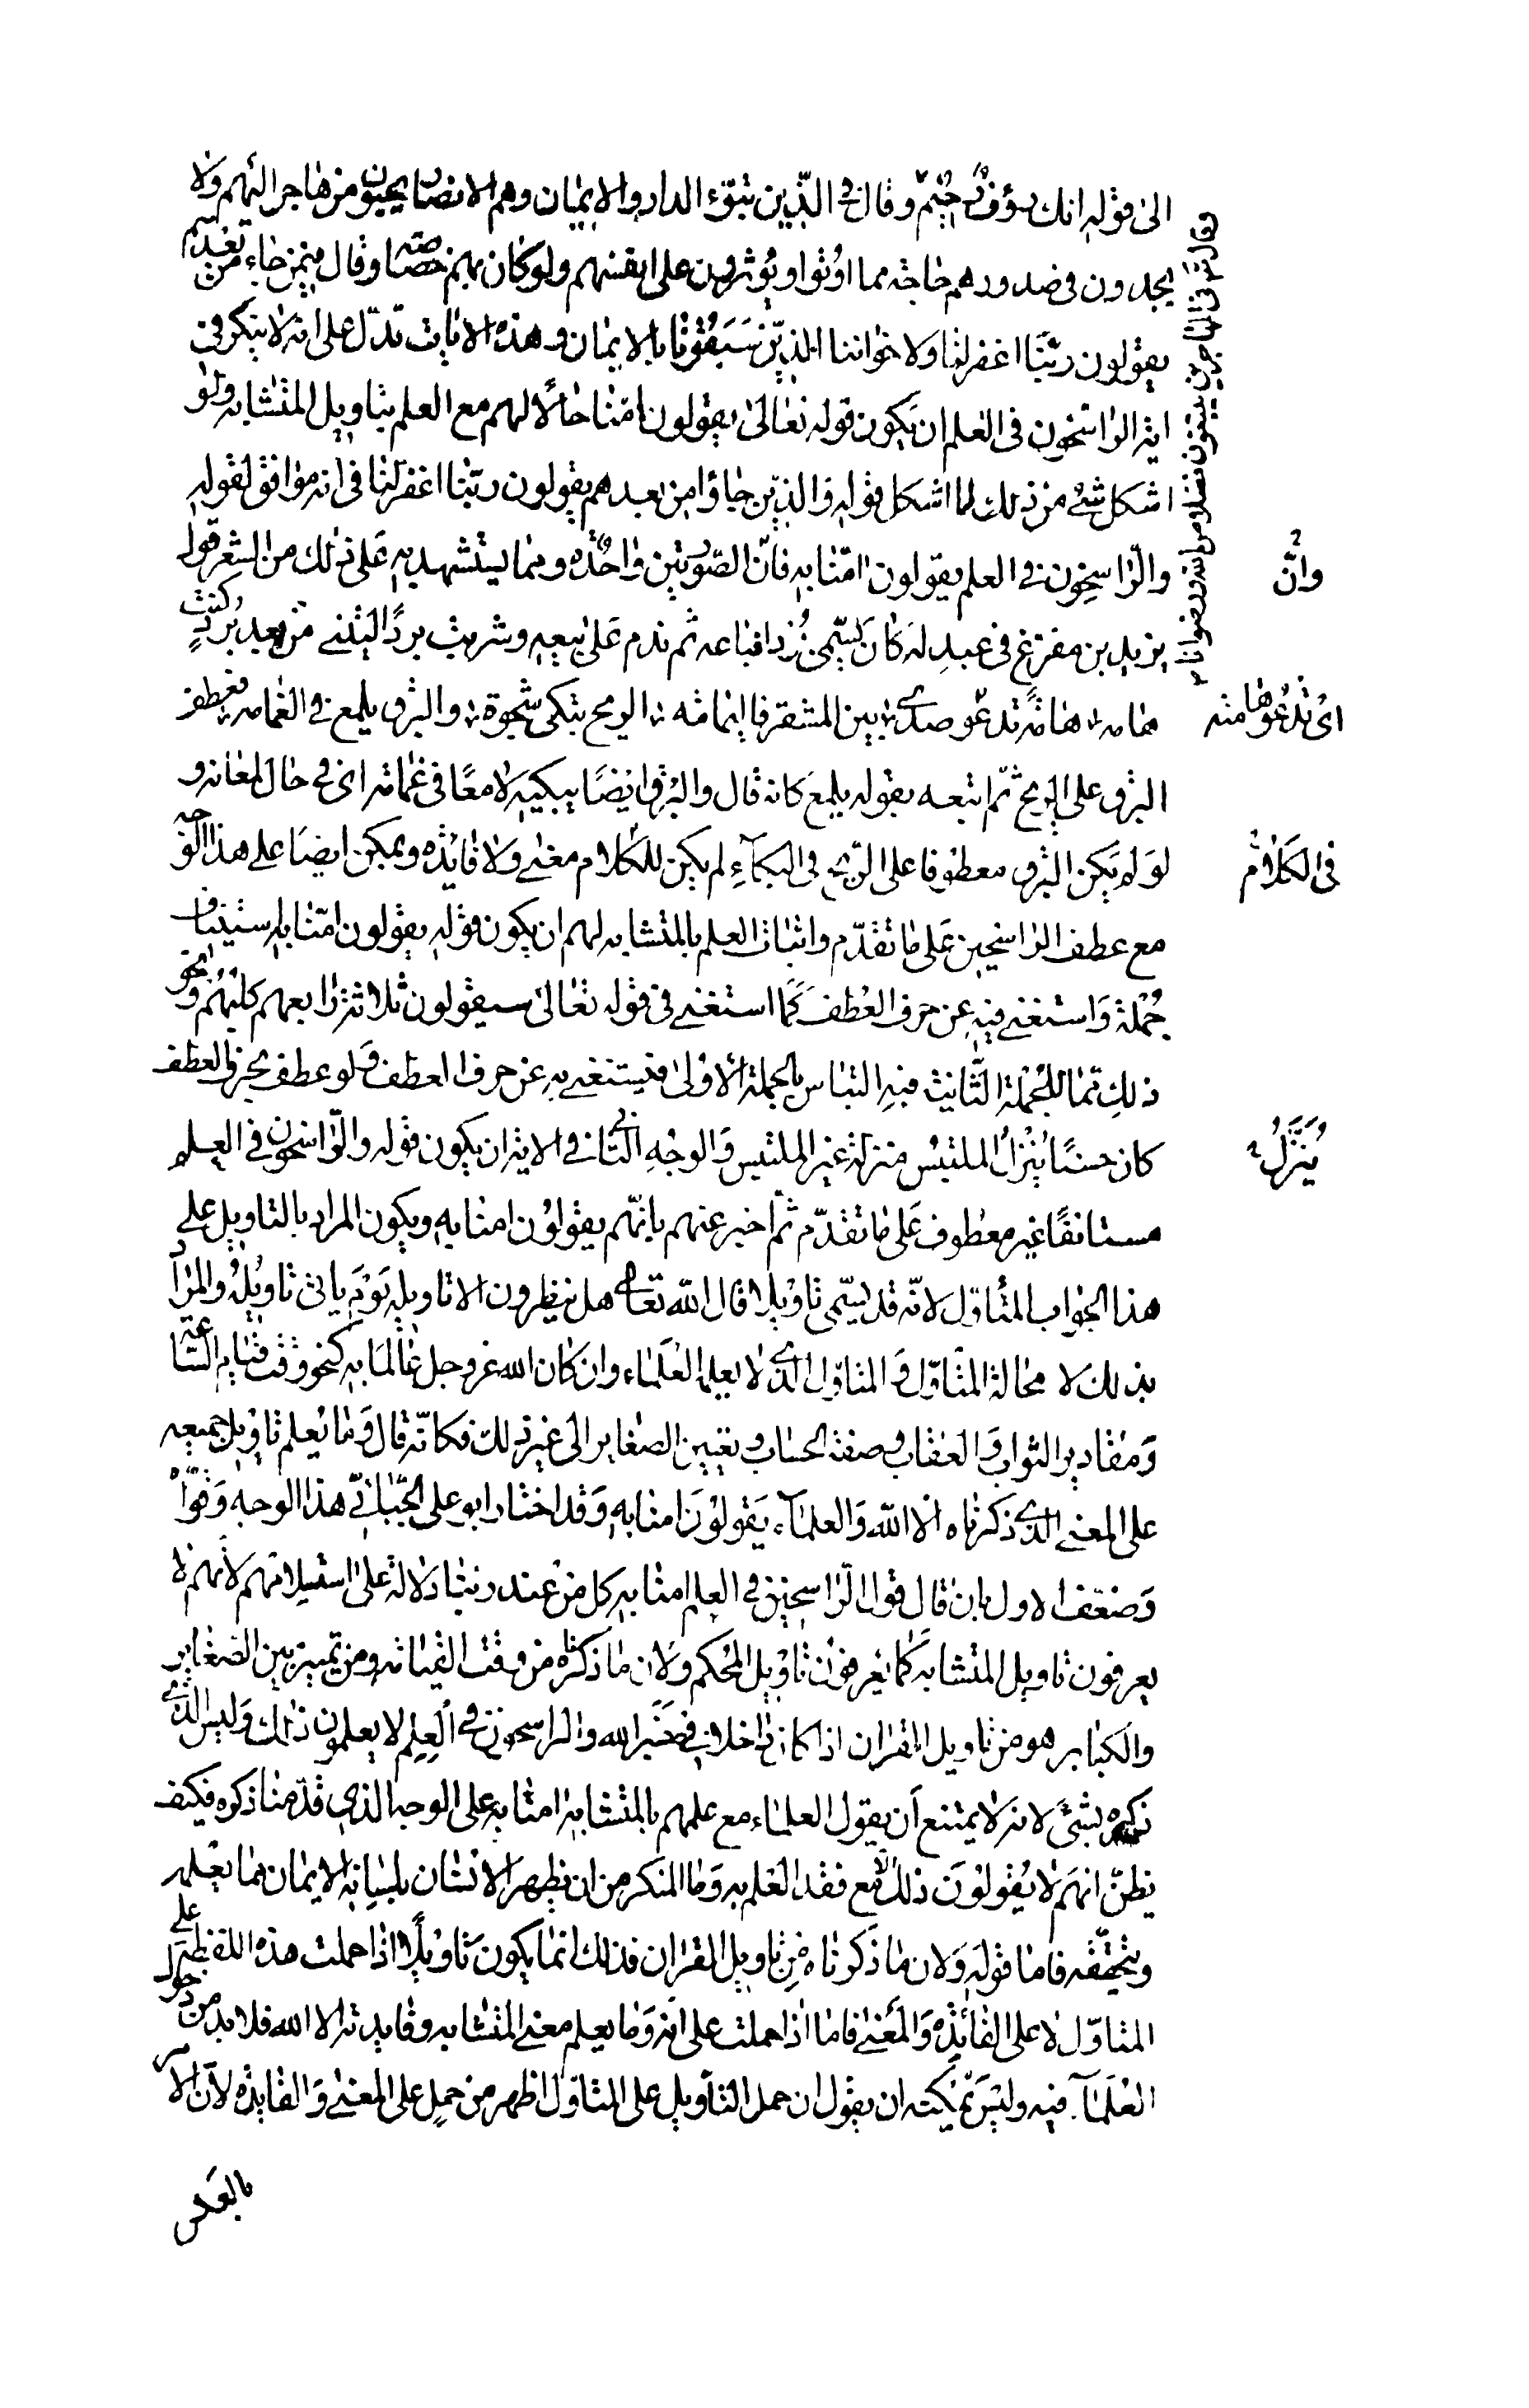 الى قوله انك رؤف رحيم وقال فى الذين تبوّء الدار والايمان وهم الانصار يحبون من هاجر اليهم ولا
يجدون فى صدورهم حاجة مما اوتوا ويؤثرون على انفسهم ولو كان بهم خصاصة وقال فيمن جاء من بعدهم
يقولون ربّنا اغفر لنا ولاخواننا الذين سَبَقُونا بالايمان وهذه الايات تدلّ على انه لا ينكر فى
اية الراسخون فى العلم ان يكون قوله تعالى يقولون امنّا حالًا لهم مع العلم بتاويل المتشابه ولو
اشكل شئ من ذلك لما اشكل قوله والذين جاؤا من بعدهم يقولون ربّنا اغفر لنا فى انه موافق لقوله
والرّاسخون فى العلم يقولون امنّا به فانّ الصورتين واحدة ومما يستشهد به على ذلك من الشعر قول
يزيد بن مفرّغ فى عبدٍ له كان يسمّى بُردا فباعه ثم ندم على بيعه وشريت بردًا ليتنى من بعد بُردٍ كنت
هامه هامةً تدعو صدى بين المشقر فاليمامه الريح تبكى شجوة والبرق يلمع فى الغمامه فعطف
البرق على الريح ثمّ اتبعه بقوله يلمع كانه قال والبرق ايضًا يبكيه لامعًا فى غمامة اى فى حال لمعانه و
لو لم يكن البرق معطوفا على الرّيح فى البكاءِ لم يكن للكلام معنى ولا فايدة ويمكن ايضا على هذا الوجه
مع عطف الراسخين على ما تقدّم واثبات العلم بالمتشابه لهم ان يكون قوله يقولون امنّا به استيناف
جُملة واستغنى فيه عن حرف العطف كما استغنى فى قوله تعالى سيقولون ثلاثة رابعهم كلبُهُم ونحو
ذلك مما للجُملة الثانية فيه التباس بالجملة الاولى فيستغنى به عن حرف العطف ولو عطف بحرف العطف
كان حسنًا يُنَزّلُ الملتبس منزلة غير الملتبس والوجه الثانى فى الاية ان يكون قوله والراسخون فى العلم
مستانفًا غير معطوف على ما تقدّم ثم اخبر عنهم بانّهم يقولون امنّا به ويكون المراد بالتاويل على
هذا الجواب المتأوّل لانّه قد يسمّى تاويلا قال الله تعالى هل ينظرون الا تاويله يوم ياتى تاويله والمراد
بذلك لا محالة المتأوّل والمتاوّل الذى لا يعلمه العلماء وان كان الله عز وجل عالما به كنحو وقت قيام الساعة
ومقادير الثواب والعقاب وصفة الحساب وتعيين الصغاير الى غير ذلك فكانّه قال وما يعلم تاويل جميعه
على المعنى الذى ذكرناه الا الله والعلماء يقولون امنا به وقد اختار ابو على الجبّائى هذا الوجه وقوّاه
وضعّف الاول بان قال قول الرّاسخين فى العلم امنا به كل من عند ربنا دلالة على استسلامهم لانهم لا
يعرفون تاويل المتشابه كما يعرفون تاويل المحكم ولان ما ذكره من وقت القيامة ومن تمييز بين الصغاير
والكباير هو من تاويل القران اذا كان داخلا فى خبر الله والراسخون فى العلم لا يعلمون ذلك وليس الذى
ذكره بشئ لانه لا يمتنع ان يقول العلماء مع علمهم بالمتشابه امنّا به على الوجه الذى قدّمنا ذكره فكيف
يظنّ انهم لا يقولون ذلك الا مع فقد العلم به وما المنكر من ان يظهر الانسان بلسانه الايمان بما يعلمه
ويتحقّقه فاما قوله ولان ما ذكرناه من تاويل القران فذلك انما يكون تاويلًا اذا حملت هذه اللفظة على
المتاوّل لا على الفائدة والمعنى فاما اذا حملت على انه وما يعلم معنى المتشابه وفايدته الا الله فلا بد من دخول
العلماء فيه وليس يمكنه ان يقول ان حمل التأويل على المتاوّل اظهر من حمله على المعنى والفايدة لان الامر
بالعكس
وقال ثم فى المهاجرين يبتغون فضلا من الله ورضوانا
وانّ
اى تدعوها منه
فى الكلام
يُنَزّلُ